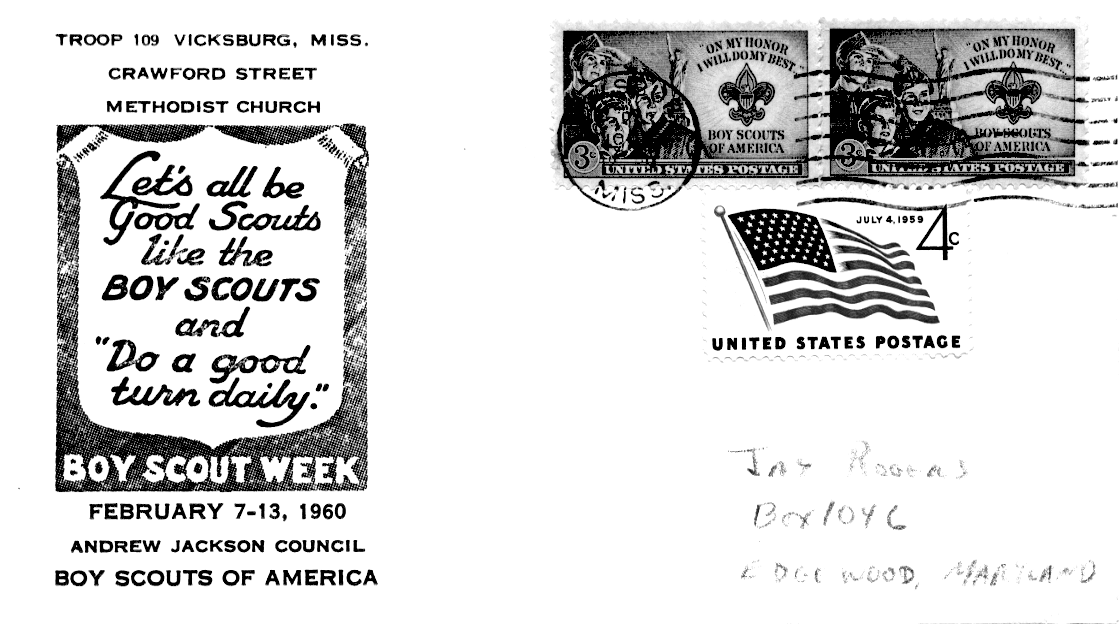 TROOP 109 VICKSBURG, MISS.
CRAWFORD STREET
METHODIST CHURCH
Let's all be
Good Scouts
like the
BOY SCOUTS
and
"Do a good
turn daily."
BOY SCOUT WEEK
FEBRUARY 7-13, 1960
ANDREW JACKSON COUNCIL
BOY SCOUTS OF AMERICA
"ON MY HONOR
I WILL DO MY BEST.."
BOY SCOUTS
OF AMERICA
3c
UNITED STATES POSTAGE
MISS.
"ON MY HONOR
I WILL DO MY BEST.."
BOY SCOUTS
OF AMERICA
3c
UNITED STATES POSTAGE
JULY 4, 1959
4c
UNITED STATES POSTAGE
JAY ROGERS
Box 1046
EDGEWOOD, MARYLAND